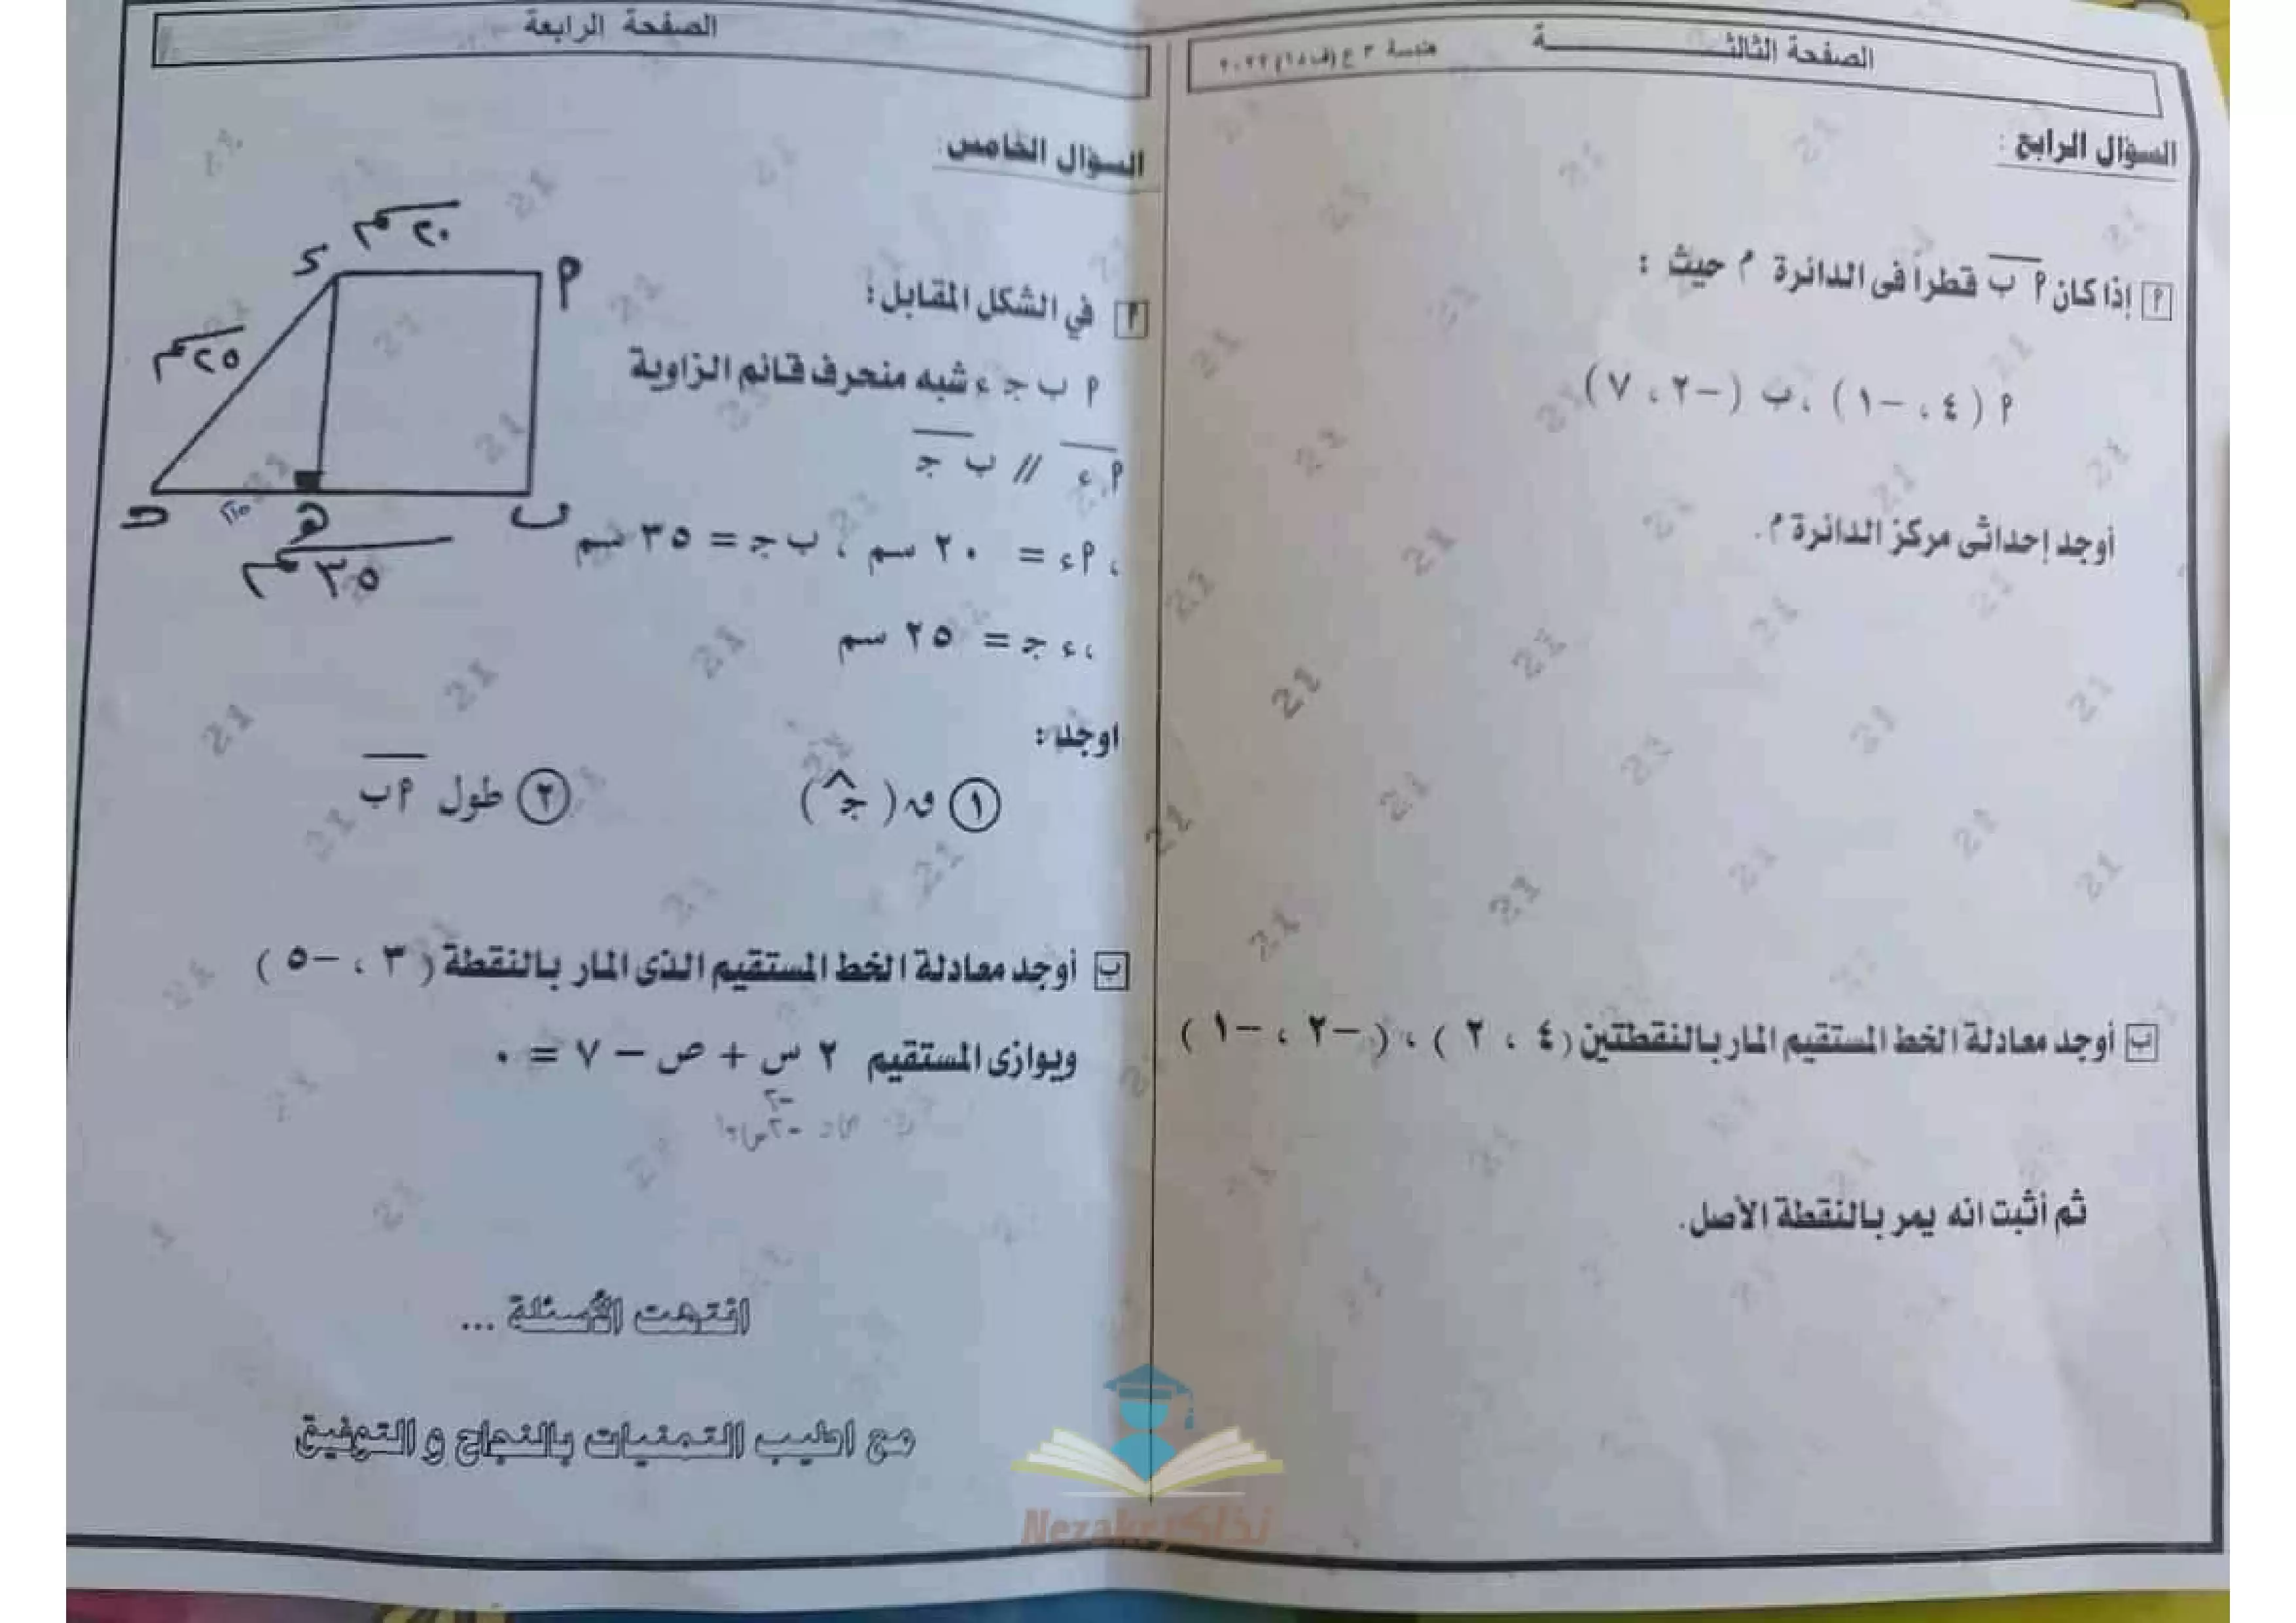 الصفحة الثالثـــــــــــة
هندسة ٣ ع (ف١٥) ٢٠٢٢
السؤال الرابع :
أ إذا كان أ ب قطراً فى الدائرة م حيث :
أ ( ٤ ، -١ ) ، ب ( -٢ ، ٧ )
أوجد إحداثى مركز الدائرة م .
ب أوجد معادلة الخط المستقيم المار بالنقطتين ( ٤ ، ٢ ) ، ( -٢ ، -١ )
ثم أثبت انه يمر بالنقطة الأصل .
الصفحة الرابعة
السؤال الخامس :
أ في الشكل المقابل :
أ ب ج ء شبه منحرف قائم الزاوية
أ ء // ب ج
، أ ء = ٢٠ سم ، ب ج = ٣٥ سم
، ء ج = ٢٥ سم
٢٠ سم
ء
أ
٢٥ سم
ج
هـ
ب
٣٥ سم
اوجد :
١ ق ( ج ) ٢ طول أ ب
ب أوجد معادلة الخط المستقيم الذى المار بالنقطة ( ٣ ، -٥ )
ويوازى المستقيم ٢ س + ص - ٧ = ٠
انتهت الأسئلة ...
مع اطيب التمنيات بالنجاح و التوفيق
Nezakr نذاكر